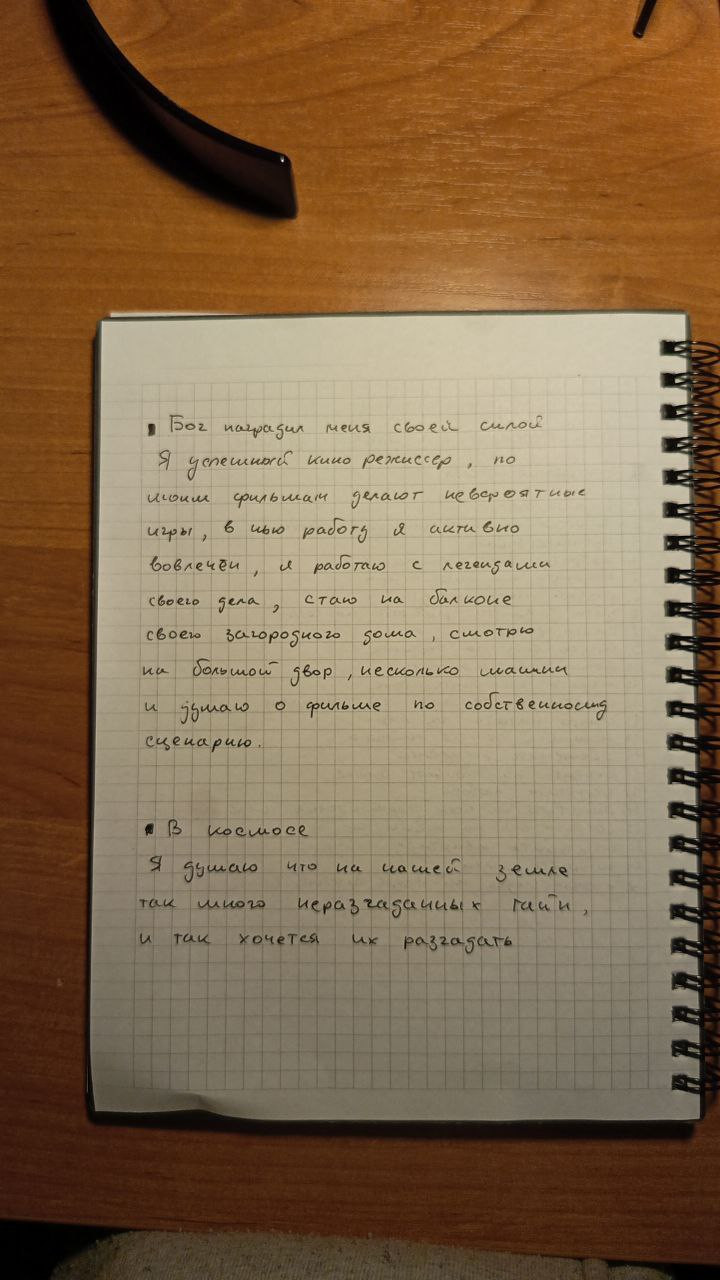 Бог наградил меня своей силой
Я успешный кино режиссер, по
моим фильмам делают невероятные
игры, в чью работу я активно
вовлечён, я работаю с легендами
своего дела, стаю на балконе
своего загородного дома, смотрю
на большой двор, несколько машин
и думаю о фильме по собственному
сценарию.
В космосе
Я думаю что на нашей земле
так много неразгаданных тайн,
и так хочется их разгадать